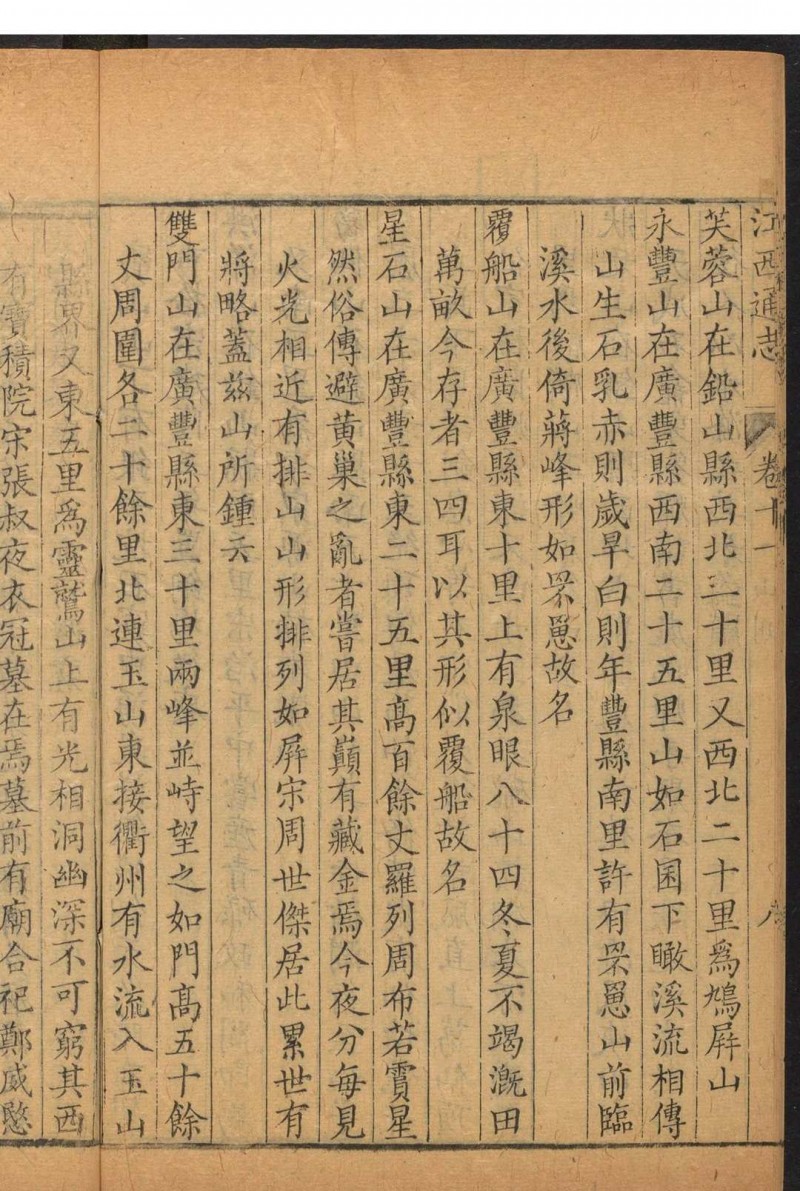 江西通志 卷十一 八
芙蓉山在鉛山縣西北三十里又西北二十里爲鳩屛山
永豐山在廣豐縣西南二十五里山如石囷下瞰溪流相傳
山生石乳赤則歲旱白則年豐縣南里許有罘罳山前臨
溪水後倚蔣峰形如罘罳故名
覆船山在廣豐縣東十里上有泉眼八十四冬夏不竭漑田
萬畝今存者三四耳以其形似覆船故名
星石山在廣豐縣東二十五里高百餘丈羅列周布若霣星
然俗傳避黃巢之亂者嘗居其巔有藏金焉今夜分每見
火光相近有排山山形排列如屛宋周世傑居此累世有
將略蓋茲山所鍾云
雙門山在廣豐縣東三十里兩峰並峙望之如門高五十餘
丈周圍各二十餘里北連玉山東接衢州有水流入玉山
縣界又東五里爲靈鷲山上有光相洞幽深不可窮其西
有寶積院宋張叔夜衣冠墓在焉墓前有廟合祀鄭威愍